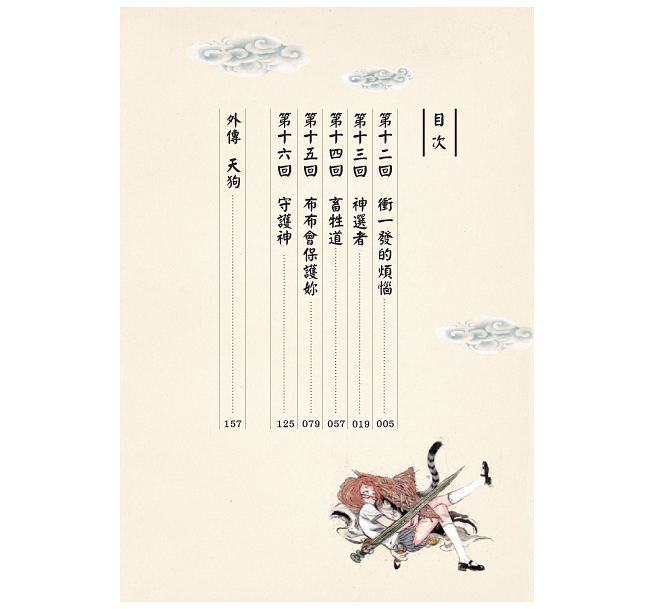 目次
第十二回 衝一發的煩惱 005
第十三回 神選者 019
第十四回 畜牲道 057
第十五回 布布會保護妳 079
第十六回 守護神 125
外傳 天狗 157